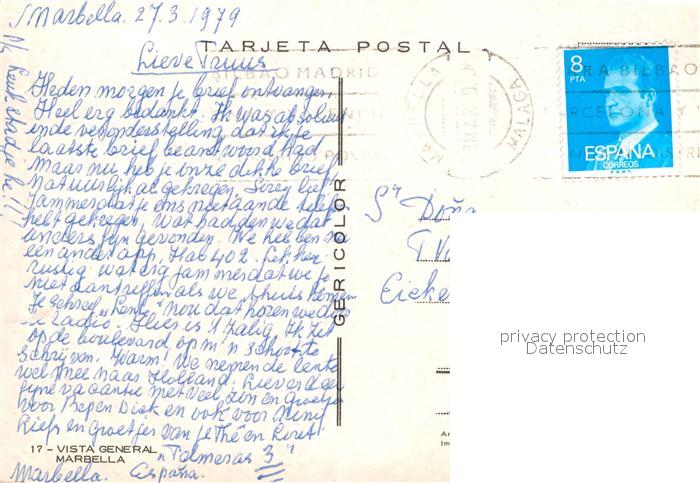 Marbella. 27.3.1979
TARJETA POSTAL
Lieve Truus
Heden morgen je brief ontvangen.
Heel erg bedankt. Ik was absoluut
in de veronderstelling dat ik je
laatste brief beantwoord had
Maar nu heb je onze dikke brief
natuurlijk al gekregen. lief
Jammer dat je ons niet aan de
hebt gekregen, wat hadden we dat
anders fijn gevonden. We hebben nu
een ander app. Hab 402. Lekker
rustig wat erg jammer dat we je
niet aantreffen als we thuis komen
Je schreef "Lente" nou dat horen we
Radio. Hier is 't zalig. Ik zit
op de boulevard op m'n
schrijven. Warm! We nemen de lente
wel mee naar Holland. Lieverd
fijne vacantie met veel zon en groetjes
voor Bep en Dick en ook voor
Liefs en groetjes van je Thé en
17 - VISTA GENERAL
MARBELLA
"Palmeras 3"
Marbella. España.
GERICOLOR
BILBAO MADRID
MARBELLA
MALAGA
BILBAO
BARCELONA Y
8
PTA
ESPAÑA
CORREOS
F.N.M.T.
Sr Doña
Eicke
privacy protection
Datenschutz